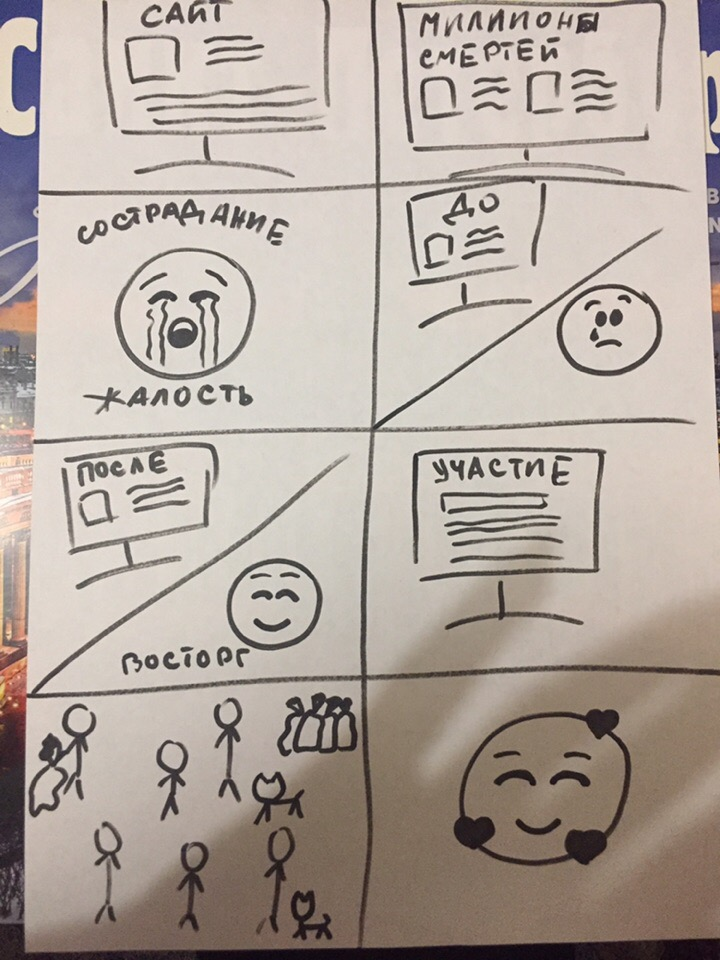 САЙТ
МИЛИОНЫ
СМЕРТЕЙ
СОСТРАДАНИЕ
ЖАЛОСТЬ
ДО
ПОСЛЕ
ВОСТОРГ
УЧАСТИЕ